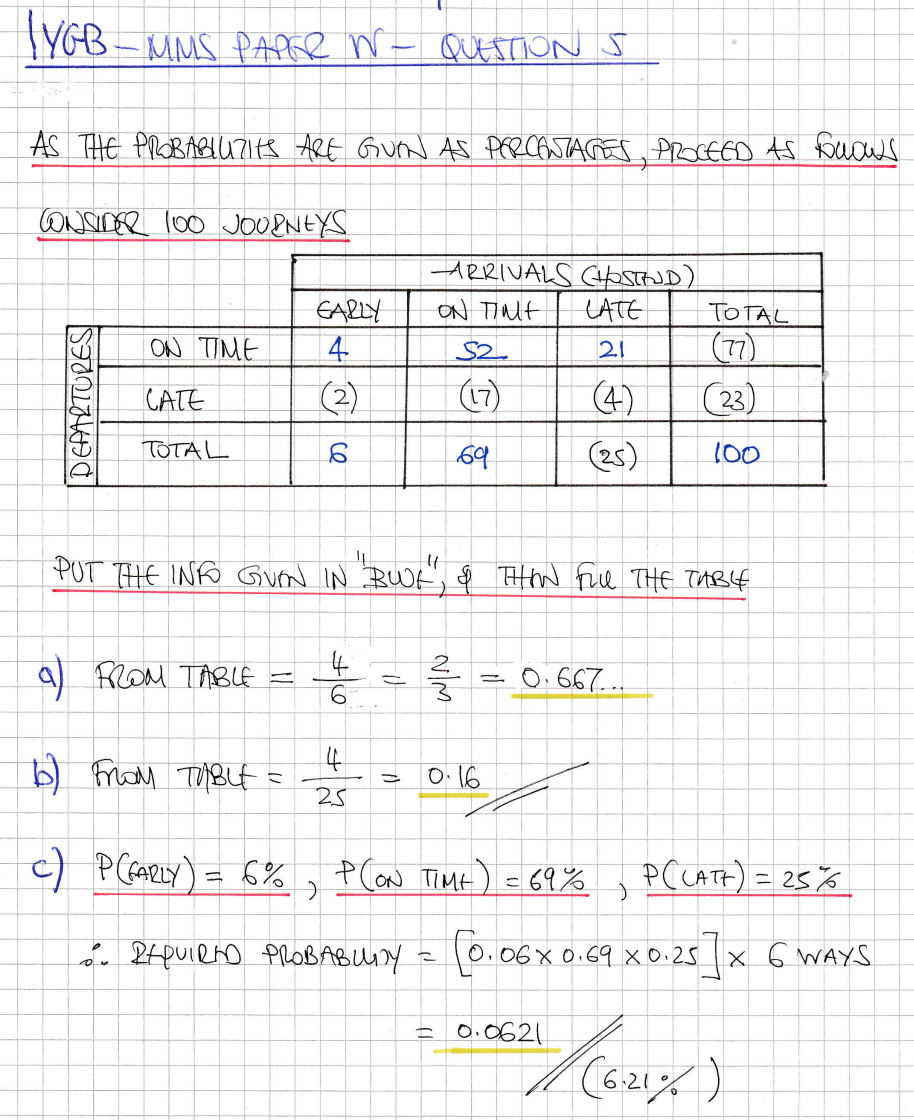 IYGB – MMS PAPER W – QUESTION 5
AS THE PROBABILITIES ARE GIVEN AS PERCENTAGES, PROCEED AS FOLLOWS
CONSIDER 100 JOURNEYS
ARRIVALS (HOSTEND)
EARLY ON TIME LATE TOTAL
DEPARTURES
ON TIME 4 52 21 (77)
LATE (2) (17) (4) (23)
TOTAL 6 69 (25) 100
PUT THE INFO GIVEN IN "BLUE", & THEN FILL THE TABLE
a) FROM TABLE = 4/6 = 2/3 = 0.667...
b) FROM TABLE = 4/25 = 0.16
c) P(EARLY) = 6%, P(ON TIME) = 69%, P(LATE) = 25%
∴ REQUIRED PROBABILITY = [0.06 × 0.69 × 0.25] × 6 WAYS
= 0.0621
(6.21%)